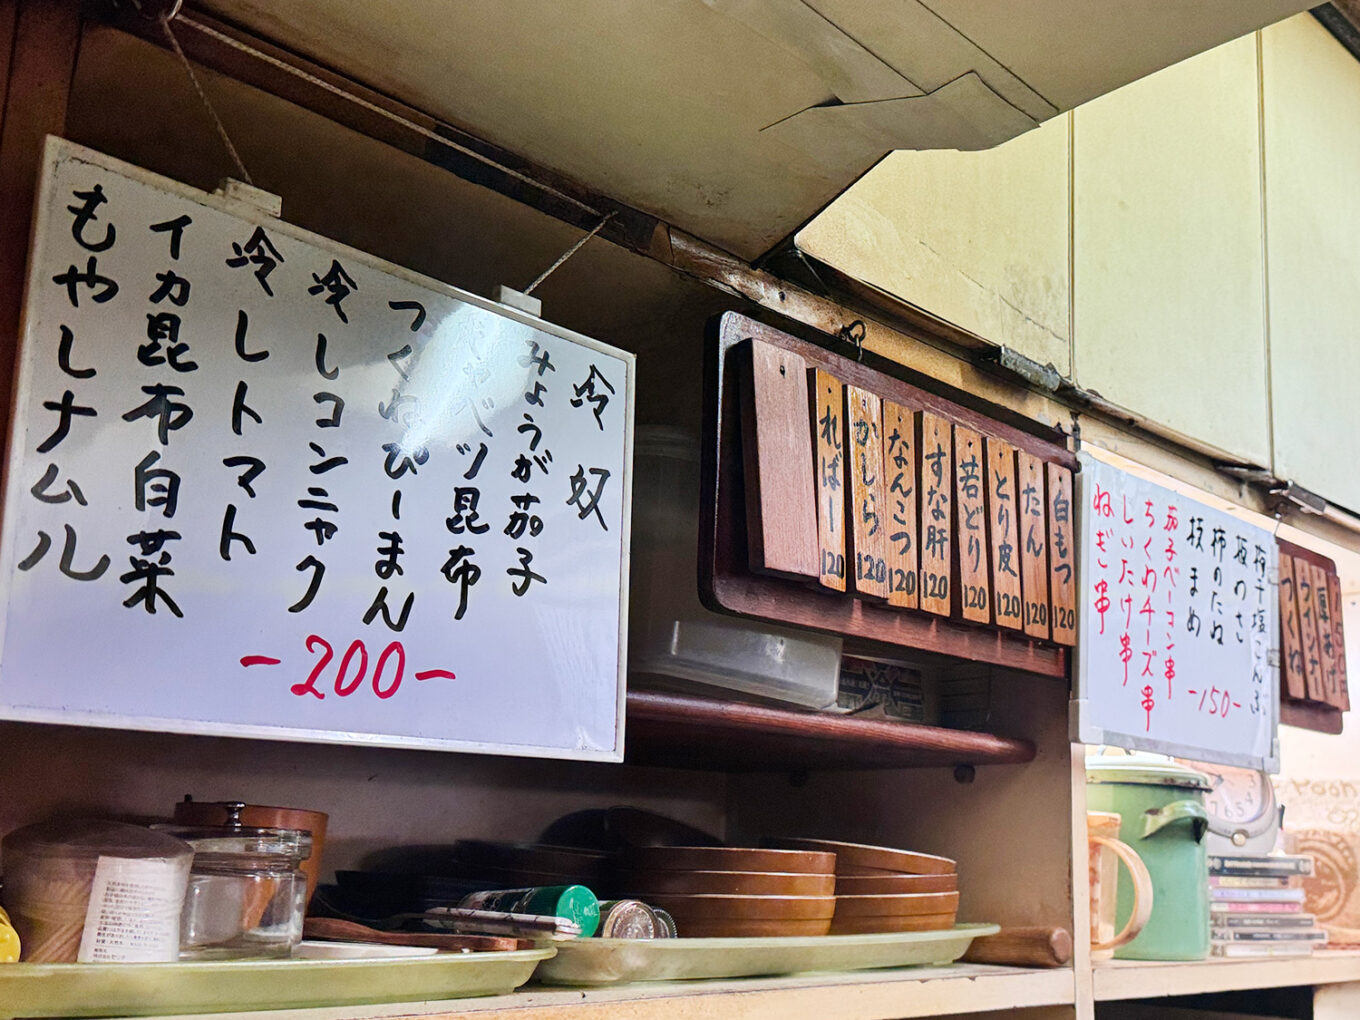 冷奴
みょうが茄子
きゃべツ昆布
つくねぴーまん
冷しコンニャク
冷しトマト
イカ昆布白菜
もやしナムル
-200-
白もつ 120
たん 120
とり皮 120
若どり 120
すな肝 120
なんこつ 120
かしら 120
ればー 120
梅干塩こんぶ
板わさ
柿のたね
枝まめ
-150-
茄子ベーコン串
ちくわチーズ串
しいたけ串
ねぎ串
厚あげ
ウインナー
つくね